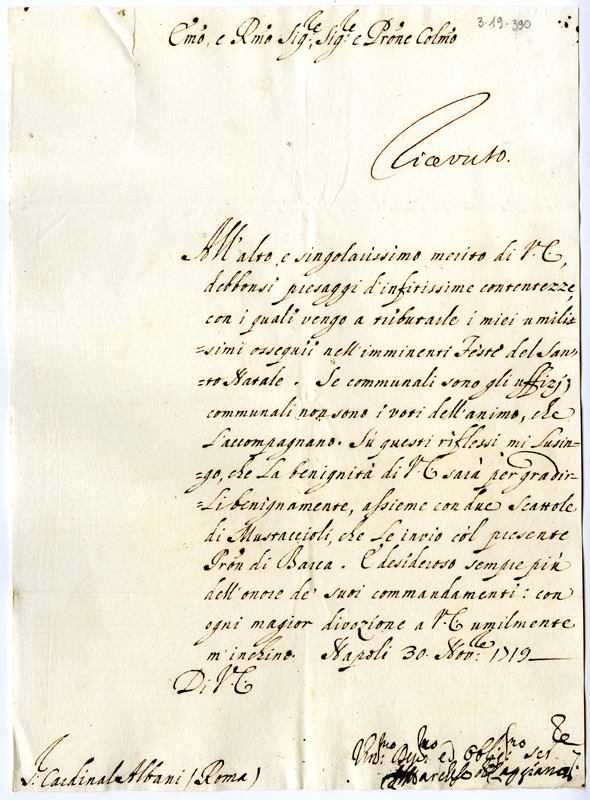 3-19-390
Emo, e Rmo Sig.re, Sig.re e Prone Colmo
Ricevuto.
All'alto, e singolarissimo merito di V. E,
debbonsi presaggi d'infitissime contentezze,
con i quali vengo a tributarle i miei umilis=
=simi ossequii nell'imminenti Feste del San=
=to Natale. Se communali sono gli uffizj,
communali non sono i voti dell'animo, che
L'accompagnano. Sù questi riflessi mi Lusin=
=go, che La benignità di V. E sarà per gradir=
=Li benignamente, assieme con due Scattole
di Mustaccioli, che Le invio còl presente
Pròn di Barca. E desideroso sempre più
dell'onore de' suoi commandamenti: con
ogni magior divozione a V. E umilmente
m'inchino. Napoli 30. Nov.e 1719
Di V. E.
Um.mo Dev.mo ed Obli.mo Ser.re
S.r Cardinal Albani (Roma)